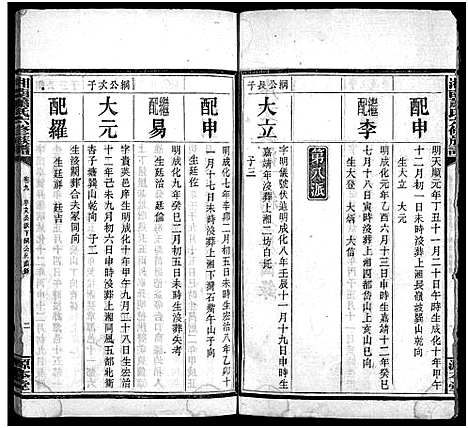 配申
明天順元年丁丑十一月二十日午時生成化十年甲午
十二月初一日未時沒葬上湘長嶺坡巽山乾向
生大立 大元
繼配李
明成化元年乙酉六月十三日申時生嘉靖十二年癸巳
七月十八日寅時沒葬上湘四都岱山上亥山巳向
生大登 大炳 大信
第八派
綱公長子
大立
字明儀號伏進明成化八年壬辰十一月十九日申時生
嘉靖年沒葬上湘二坊白托
子三
配申
明成化七年辛卯二月初五日午時生宏治八年乙卯十
一月十七日未時沒葬上湘下灣石觜午山子向
生廷佐
繼配易
明成化九年癸巳二月初二日丑時生沒葬失考
生廷治 廷倫
綱公次子
大元
字貴英邑庠生明成化十年甲午九月二十八日生宏治
十二年己未九月初六日申時沒葬上湘同風五都北衝
杏子塘巽山乾向 子二
配羅
生沒闕葬合夫冢同向
生廷爵 廷吉
卷九
二